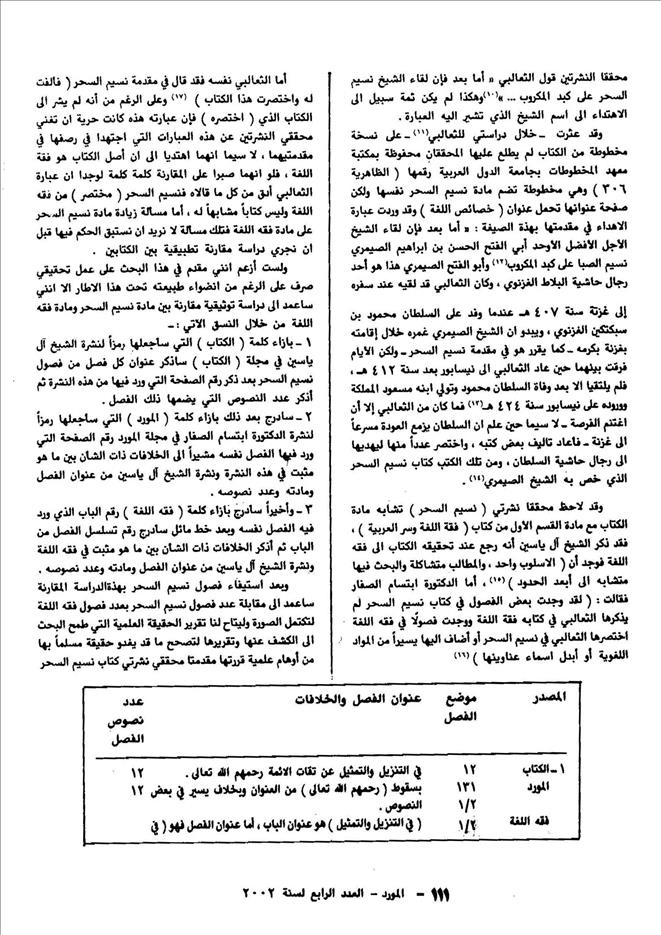 محققا النشرتين قول الثعالبي « أما بعد فإن لقاء الشيخ نسيم
السحر على كبد المكروب ... »(١٠) وهكذا لم يكن ثمة سبيل الى
الاهتداء الى اسم الشيخ الذي تشير اليه العبارة .
وقد عثرت – خلال دراستي للثعالبي(١١) – على نسخة
مخطوطة من الكتاب لم يطلع عليها المحققان محفوظة بمكتبة
معهد المخطوطات بجامعة الدول العربية رقمها ( الظاهرية
٣٠٦ ) وهي مخطوطة تضم مادة نسيم السحر نفسها ولكن
صفحة عنوانها تحمل عنوان ( خصائص اللغة ) وقد وردت عبارة
الاهداء في مقدمتها بهذة الصيغة : « أما بعد فإن لقاء الشيخ
الأجل الأفضل الأوحد أبي الفتح الحسن بن ابراهيم الصيمري
نسيم الصبا على كبد المكروب(١٢) وأبو الفتح الصيمري هذا هو أحد
رجال حاشية البلاط الغزنوي ، وكان الثعالبي قد لقيه عند سفره
إلى غزنة سنة ٤٠٧ هـ عندما وفد على السلطان محمود بن
سبكتكين الغزنوي ، ويبدو ان الشيخ الصيمري غمره خلال إقامته
بغزنة بكرمه – كما يقرر هو في مقدمة نسيم السحر – ولكن الأيام
فرقت بينهما حين عاد الثعالبي الى نيسابور بعد سنة ٤١٢ هـ ،
فلم يلتقيا الا بعد وفاة السلطان محمود وتولي ابنه مسعود المملكة
ووروده على نيسابور سنة ٤٢٤ هـ(١٣) فما كان من الثعالبي إلا أن
اغتنم الفرصة – لا سيما حين علم ان السلطان يزمع العودة مسرعاً
الى غزنة – فاعاد تاليف بعض كتبه ، واختصر عدداً منها ليهديها
الى رجال حاشية السلطان ، ومن تلك الكتب كتاب نسيم السحر
الذي خص به الشيخ الصيمري(١٤) .
وقد لاحظ محققا نشرتي ( نسيم السحر ) تشابه مادة
الكتاب مع مادة القسم الأول من كتاب ( فقة اللغة وسر العربية ) ،
فقد ذكر الشيخ آل ياسين أنه رجع عند تحقيقه الكتاب الى فقه
اللغة فوجد أن ( الاسلوب واحد ، والمطالب متشاكلة والبحث فيها
متشابه الى أبعد الحدود )(١٥) ، أما الدكتورة ابتسام الصفار
فقالت : ( لقد وجدت بعض الفصول في كتاب نسيم السحر لم
يذكرها الثعالبي في كتابه فقة اللغة ووجدت فصولًا في فقه اللغة
اختصرها الثعالبي في نسيم السحر أو أضاف اليها يسيراً من المواد
اللغوية أو أبدل اسماء عناوينها )(١٦)
أما الثعالبي نفسه فقد قال في مقدمة نسيم السحر ( فالفت
له واختصرت هذا الكتاب )(١٧) وعلى الرغم من أنه لم يشر الى
الكتاب الذي ( اختصره ) فإن عبارته هذه كانت حرية ان تغني
محققي النشرتين عن هذه العبارات التي اجتهدا في رصفها في
مقدمتيهما ، لا سيما انهما اهتديا الى ان أصل الكتاب هو فقة
اللغة ، فلو انهما صبرا على المقارنة كلمة كلمة لوجدا ان عبارة
الثعالبي أدق من كل ما قالاه فنسيم السحر ( مختصر ) من فقه
اللغة وليس كتاباً مشابهاً له ، أما مسالة زيادة مادة نسيم السحر
على مادة فقه اللغة فتلك مسالة لا نريد ان نستبق الحكم فيها قبل
ان نجري دراسة مقارنة تطبيقية بين الكتابين .
ولست أزعم انني مقدم في هذا البحث على عمل تحقيقي
صرف على الرغم من انضواء طبيعته تحت هذا الاطار الا انني
ساعمد الى دراسة توثيقية مقارنة بين مادة نسيم السحر ومادة فقه
اللغة من خلال النسق الآتي : –
١ – بازاء كلمة ( الكتاب ) التي ساجعلها رمزاً لنشرة الشيخ آل
ياسين في مجلة ( الكتاب ) ساذكر عنوان كل فصل من فصول
نسيم السحر بعد ذكر رقم الصفحة التي ورد فيها من هذه النشرة ثم
أذكر عدد النصوص التي يضمها ذلك الفصل .
٢ – سادرج بعد ذلك بازاء كلمة ( المورد ) التي ساجعلها رمزاً
لنشرة الدكتورة ابتسام الصفار في مجلة المورد رقم الصفحة التي
ورد فيها الفصل نفسه مشيراً الى الخلافات ذات الشان بين ما هو
مثبت في هذه النشرة ونشرة الشيخ آل ياسين من عنوان الفصل
ومادته وعدد نصوصه .
٣ – وأخيراً سادرج بازاء كلمة ( فقه اللغة ) رقم الباب الذي ورد
فيه الفصل نفسه وبعد خط مائل سادرج رقم تسلسل الفصل من
الباب ثم أذكر الخلافات ذات الشان بين ما هو مثبت في فقه اللغة
ونشرة الشيخ آل ياسين من عنوان الفصل ومادته وعدد نصوصه .
وبعد استيفاء فصول نسيم السحر بهذةالدراسة المقارنة
ساعمد الى مقابلة عدد فصول نسيم السحر بعدد فصول فقه اللغة
لتكتمل الصورة وليتاح لنا تقرير الحقيقة العلمية التي طمح البحث
الى الكشف عنها وتقريرها لتصحح ما قد يغدو حقيقة مسلماً بها
من أوهام علمية قررتها مقدمتا محققي نشرتي كتاب نسيم السحر
المصدر موضع عنوان الفصل والخلافات عدد
الفصل نصوص
الفصل
١ – الكتاب ١٢ في التنزيل والتمثيل عن تقات الائمة رحمهم الله تعالى . ١٢
المورد ١٣١ بسقوط ( رحمهم الله تعالى ) من العنوان وبخلاف يسير في بعض ١٢
١/٢ النصوص .
فقه اللغة ١/٢ ( في التنزيل والتمثيل ) هو عنوان الباب ، أما عنوان الفصل فهو ( في
١١١ – المورد – العدد الرابع لسنة ٢٠٠٢